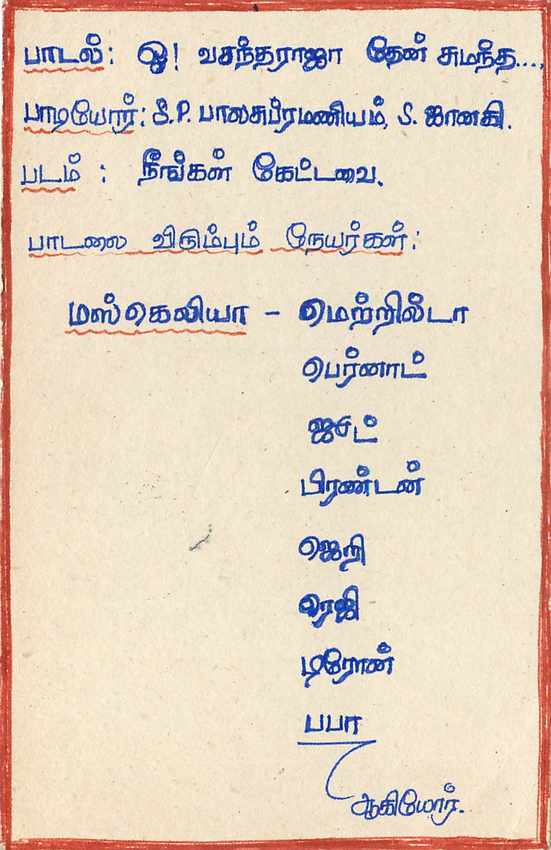 பாடல் : ஓ! வசந்தராஜா தேன் சுமந்த...,
பாடியோர் : S.P. பாலசுப்ரமணியம், S. ஜானகி.
படம் : நீங்கள் கேட்டவை.
பாடலை விரும்பும் நேயர்கள் :
மஸ்கெலியா - மெற்றில்டா
பெர்னாட்
ஜூட்
பிரண்டன்
ஜெறி
ரெஜி
டிரோன்
பபா
ஆகியோர்.